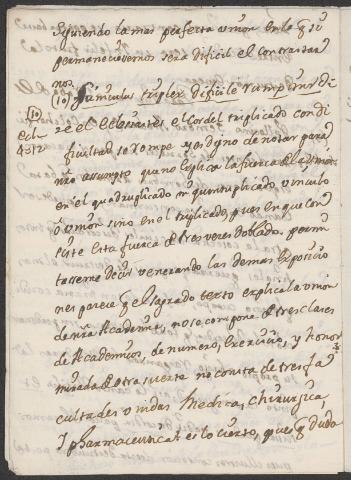 siguiendo la mas perfecta union en la q̃ si
permanecieremos sera dificil el contrastar
nos.
(10) funiculus triplex dificile rumpitur di
(10)
ecl.
4.312
ze el Eclesiastes el Cordel triplicado con di
ficultad se rompe y es digno de notar para
nrõ assumpto que no explica la fuerza de la union
en el quadruplicado ni quintuplicado, vinculo
ò union sino en el triplicado, pues en que con
siste esta fuerza de tres veces doblado, permi
taseme decir venerando las demas exposicio
nes parece q̃ el sagrado texto explica la union
de nrã Academia, no se compone de tres clases
de Academicos, de numero, Exercicio, y honor
mirada de otra suerte no consta de tres fa
cultades unidas Medica, chirurgica,
I pharmaceutica es lo cierto, pues q̃ duda